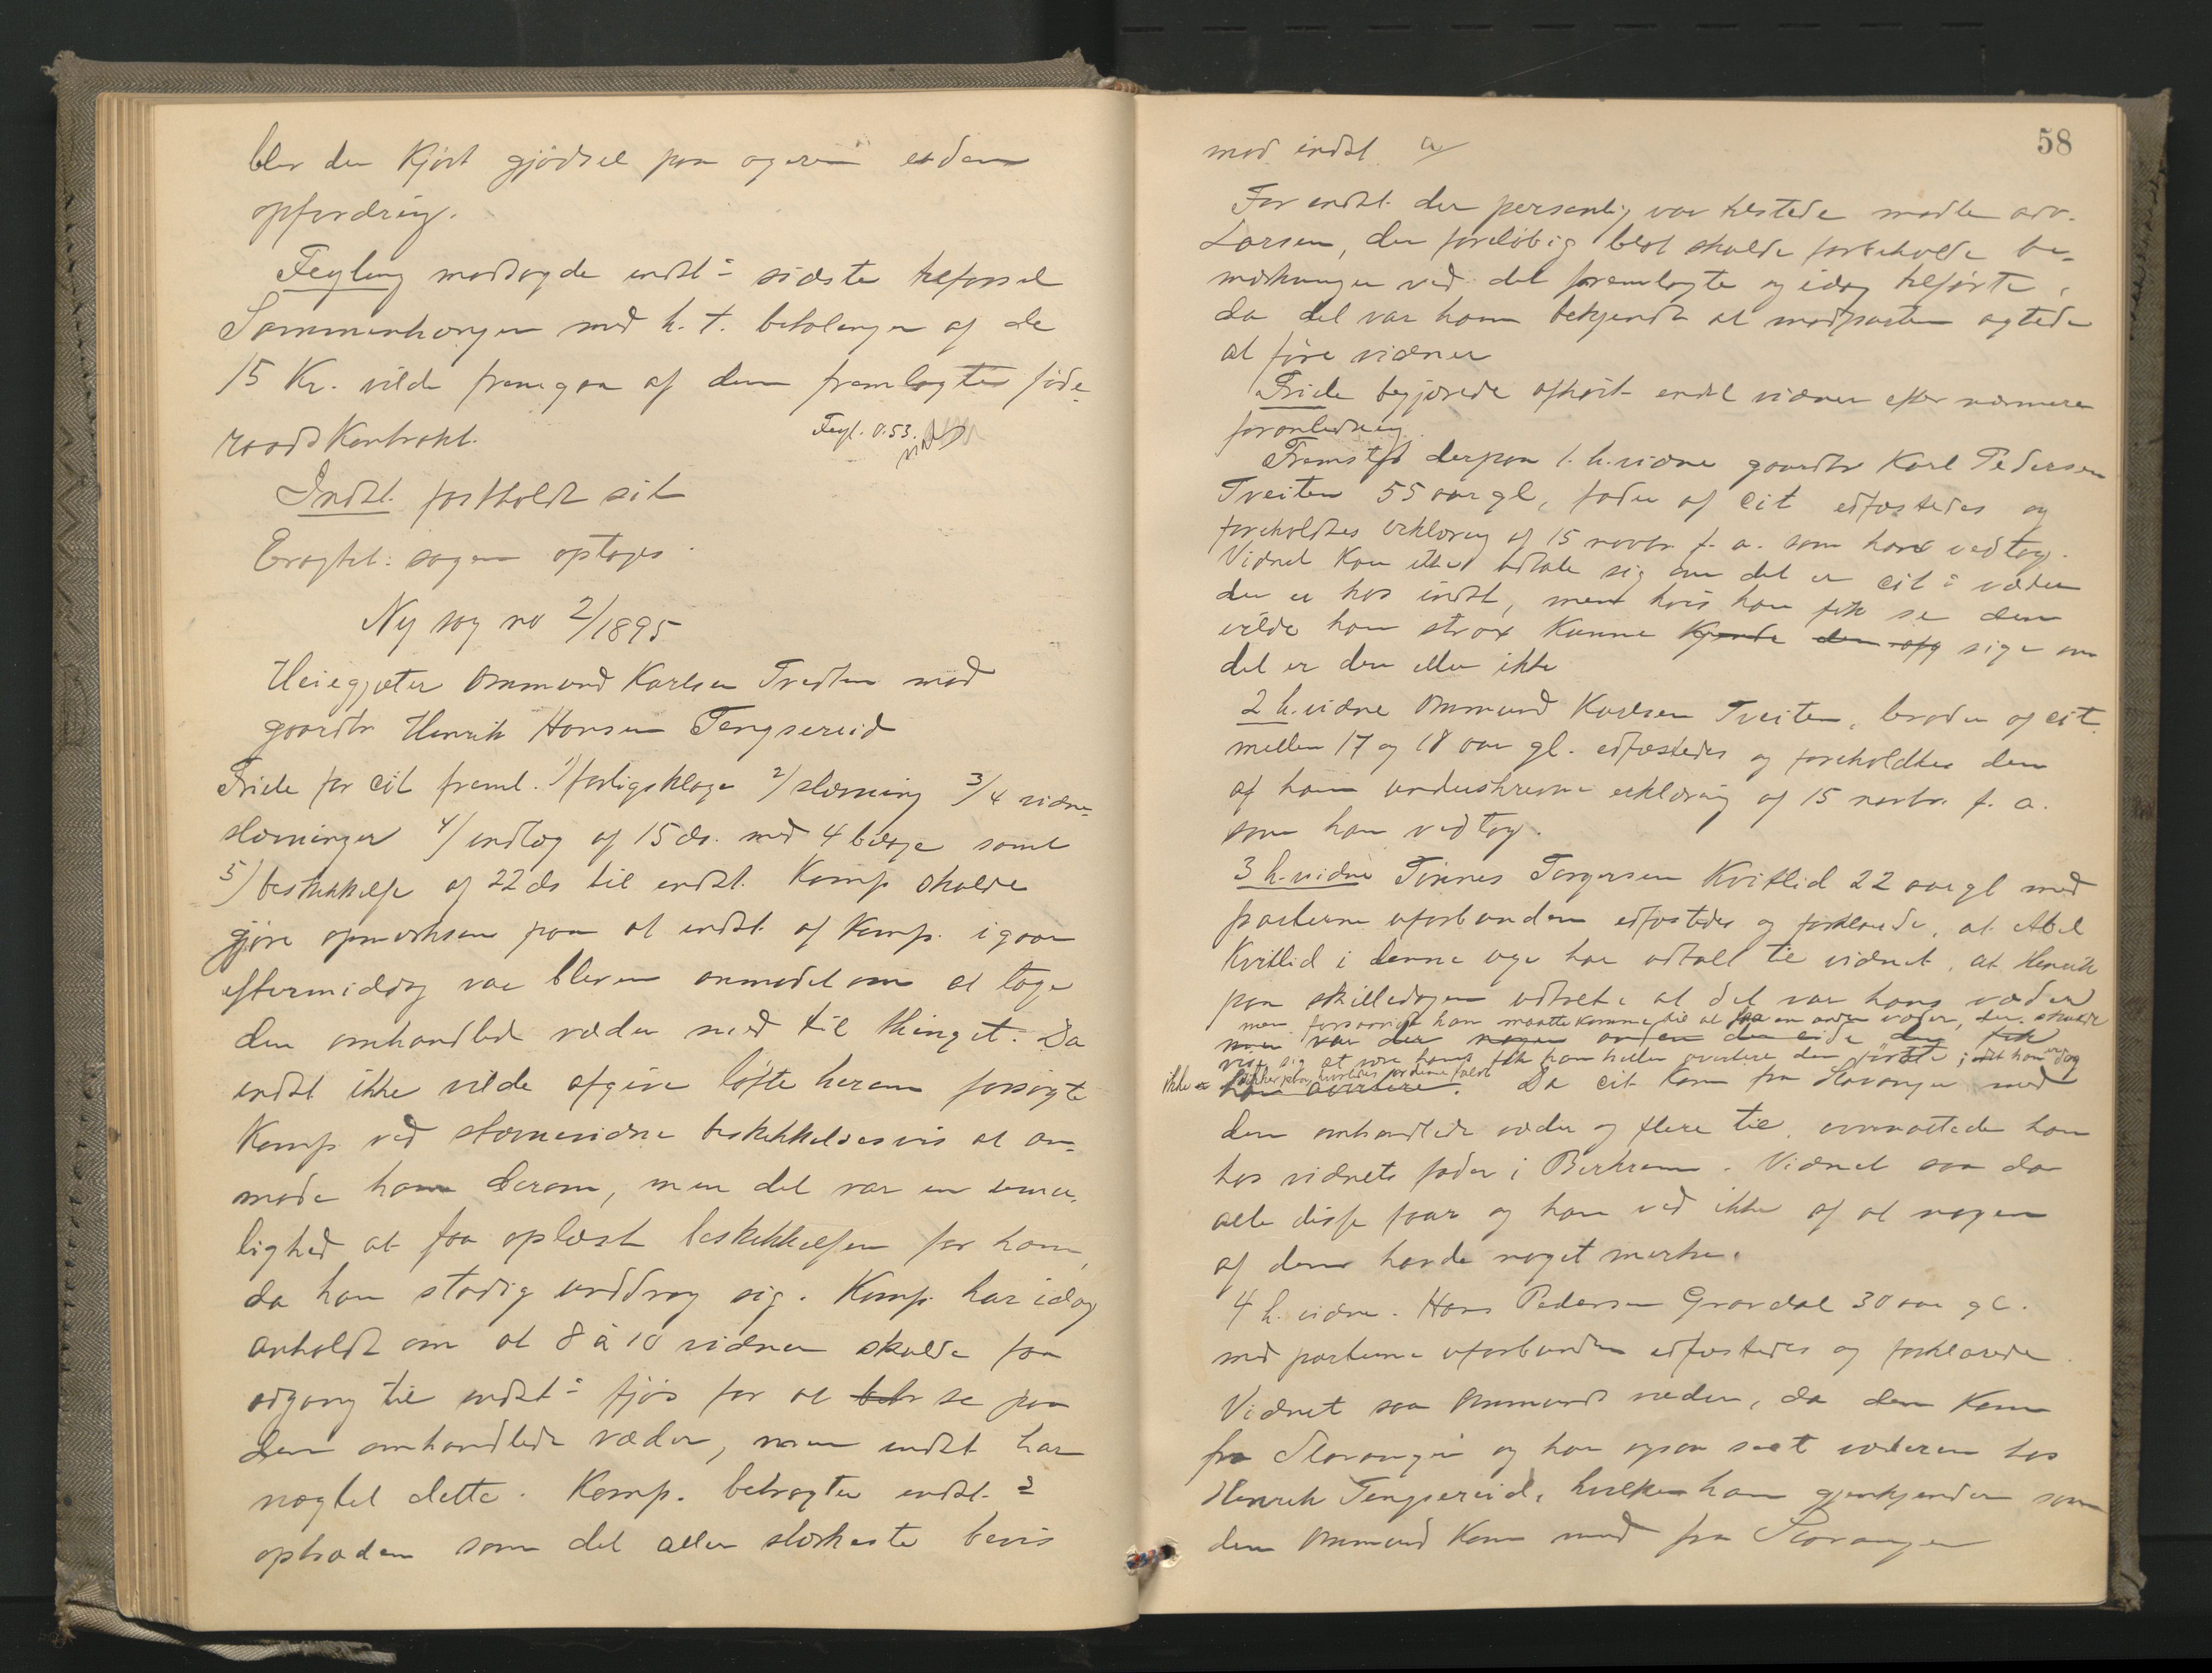 blev der kjørt gjødsel paa ageren uden
opfordring.
Feyling modsagde indst⸗ sidste tilførsel
Sammenhængen med h. t. betalingen af de
15 Kr. vilde fremgaa af den fremlagte føde-
raadskontrakt.
Feyl. o. 53.
Indst. fastholdt sit
Eragtet: sagen optages.
Ny sag no 2/1895
Heiegjæter Ommund Karlsen Tveiten mod
gaardbr Henrik Hansen Tengsereid
Friele for cit freml. 1) forligsklage 2/ stævning 3/ 4 vidne-
stævninger 4/ indlæg af 15 ds. med 4 bilage samt
5) beskikkelse af 22 ds til indst. Komp skulde
gjøre opmerksom paa at indst. af Komp. igaar
eftermiddag var bleven anmodet om at tage
den omhandlede væder med til thinget. Da
indst ikke vilde afgive løfte herom forsøgte
Komp ved stævnevidne beskikkelsesvis at an-
mode ham derom, men det var en umu-
lighed at faa oplæst beskikkelsen for ham,
da han stadig unddrog sig. Komp. har idag
anholdt om at 8 à 10 vidner skulde faa
adgang til indst⸗ fjøs for at se paa
den omhandlede væder, men indst har
nægtet dette. Komp. betragter indst. ⸗
optræden som det aller stærkeste bevis
58
mod indst.
For indst. der personlig var tilstede mødte adv.
Larsen, der foreløbig blot skulde forbeholde be-
mærkninger ved det fremlagte og idag tilførte,
da det var ham bekjendt at modparten agtede
at føre vidner
Friele begjærede afhørt endel vidner efter nærmere
foranledning.
Fremstod derpaa 1. h. vidne gaardbr Karl Pedersen
Tveiten 55 aar gl, fader af cit edfæstedes og
foreholdtes erklæring af 15 novbr. f. a. som han vedtog.
Vidnet kan ikke udtale sig om det er cit⸗ væder
der er hos indst, men hvis han fik se den
vilde han strax kunne kjende den og sige om
det er den eller ikke
2 h. vidne Ommund Karlsen Tveiten, broder af cit.
mellem 17 og 18 aar gl. edfæstedes og foreholdtes den
af ham underskrevne erklæring af 15 novbr. f. a.
som han vedtog.
3 h. vidne Tønnes Torgersen Kvitlid 22 aar gl med
parterne uforbunden edfæstedes og forklarede, at Abel
Kvitlid i denne uge har udtalt til vidnet, at Henrik
paa skilledagen udtalte at det var hans væder
men forsaavidt han maatte komme til at faa en anden væder, der skulde
men var der nogen anden der eide den fik
vise sig at være hans fik han heller avertere den første; idet han var dog
ikke
han avertere. Da cit kom fra Stavanger med
den omhandlede væder og flere til, overnattede han
hos vidnets fader i Berkrem. Vidnet saa da
alle disse faar og han ved ikke af at nogen
af dem havde noget merke.
4 h. vidne. Hans Pedersen Gravdal 30 aar gl.
med parterne uforbunden edfæstedes og forklarede.
Vidnet saa Ommunds væder, da den kom
fra Stavanger og har ogsaa seet væderen hos
Henrik Tengsereid, hvilken han gjenkjender som
den Ommund kom med fra Stavanger